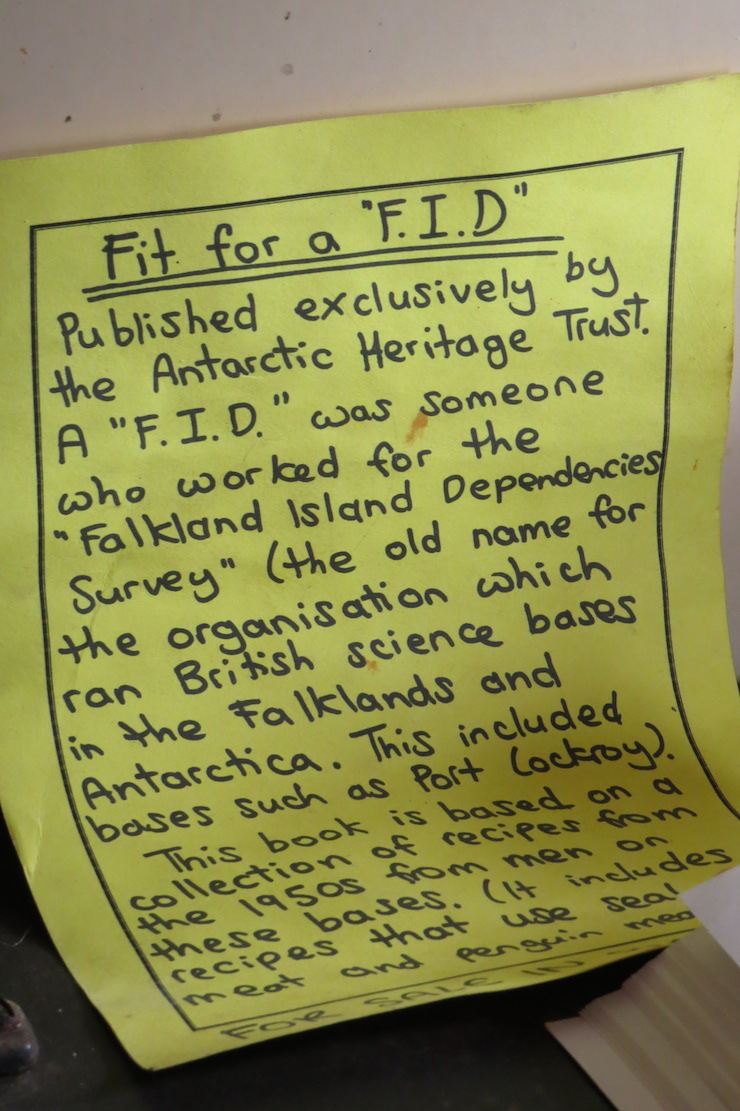 Fit for a "F.I.D"
Published exclusively by
the Antarctic Heritage Trust.
A "F.I.D." was someone
who worked for the
"Falkland Island Dependencies
Survey" (the old name for
the organisation which
ran British science bases
in the Falklands and
Antarctica. This included
bases such as Port Lockroy).
This book is based on a
collection of recipes from
the 1950s from men on
these bases. (It includes
recipes that use seal
meat and penguin
FOR SALE IN